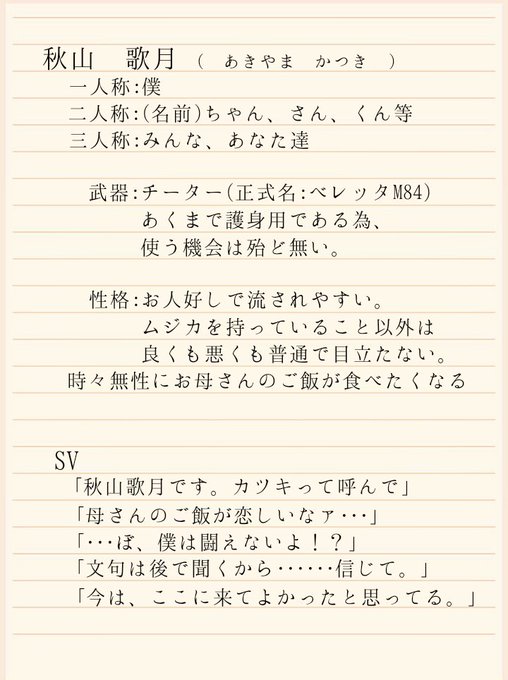 秋山　歌月（　あきやま　かつき　）
一人称:僕
二人称:(名前)ちゃん、さん、くん等
三人称:みんな、あなた達
武器:チーター(正式名:ベレッタM84)
あくまで護身用である為、
使う機会は殆ど無い。
性格:お人好しで流されやすい。
ムジカを持っていること以外は
良くも悪くも普通で目立たない。
時々無性にお母さんのご飯が食べたくなる
SV
「秋山歌月です。カツキって呼んで」
「母さんのご飯が恋しいなァ･･･」
「･･･ぼ、僕は闘えないよ！？」
「文句は後で聞くから･･････信じて。」
「今は、ここに来てよかったと思ってる。」